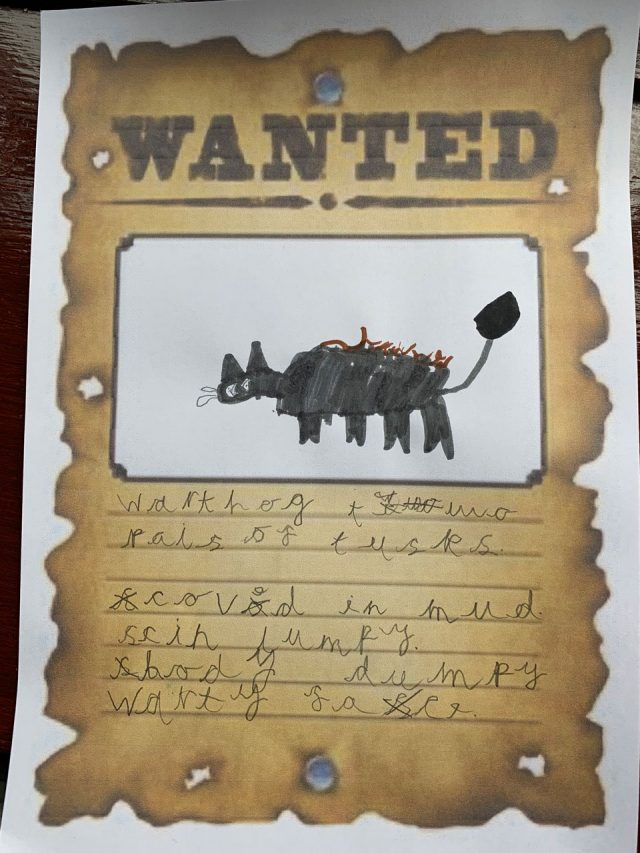 WANTED
warthog tuuo
pais of tusks.
covd in mud.
scin lumpy.
body dumpy
warty face.